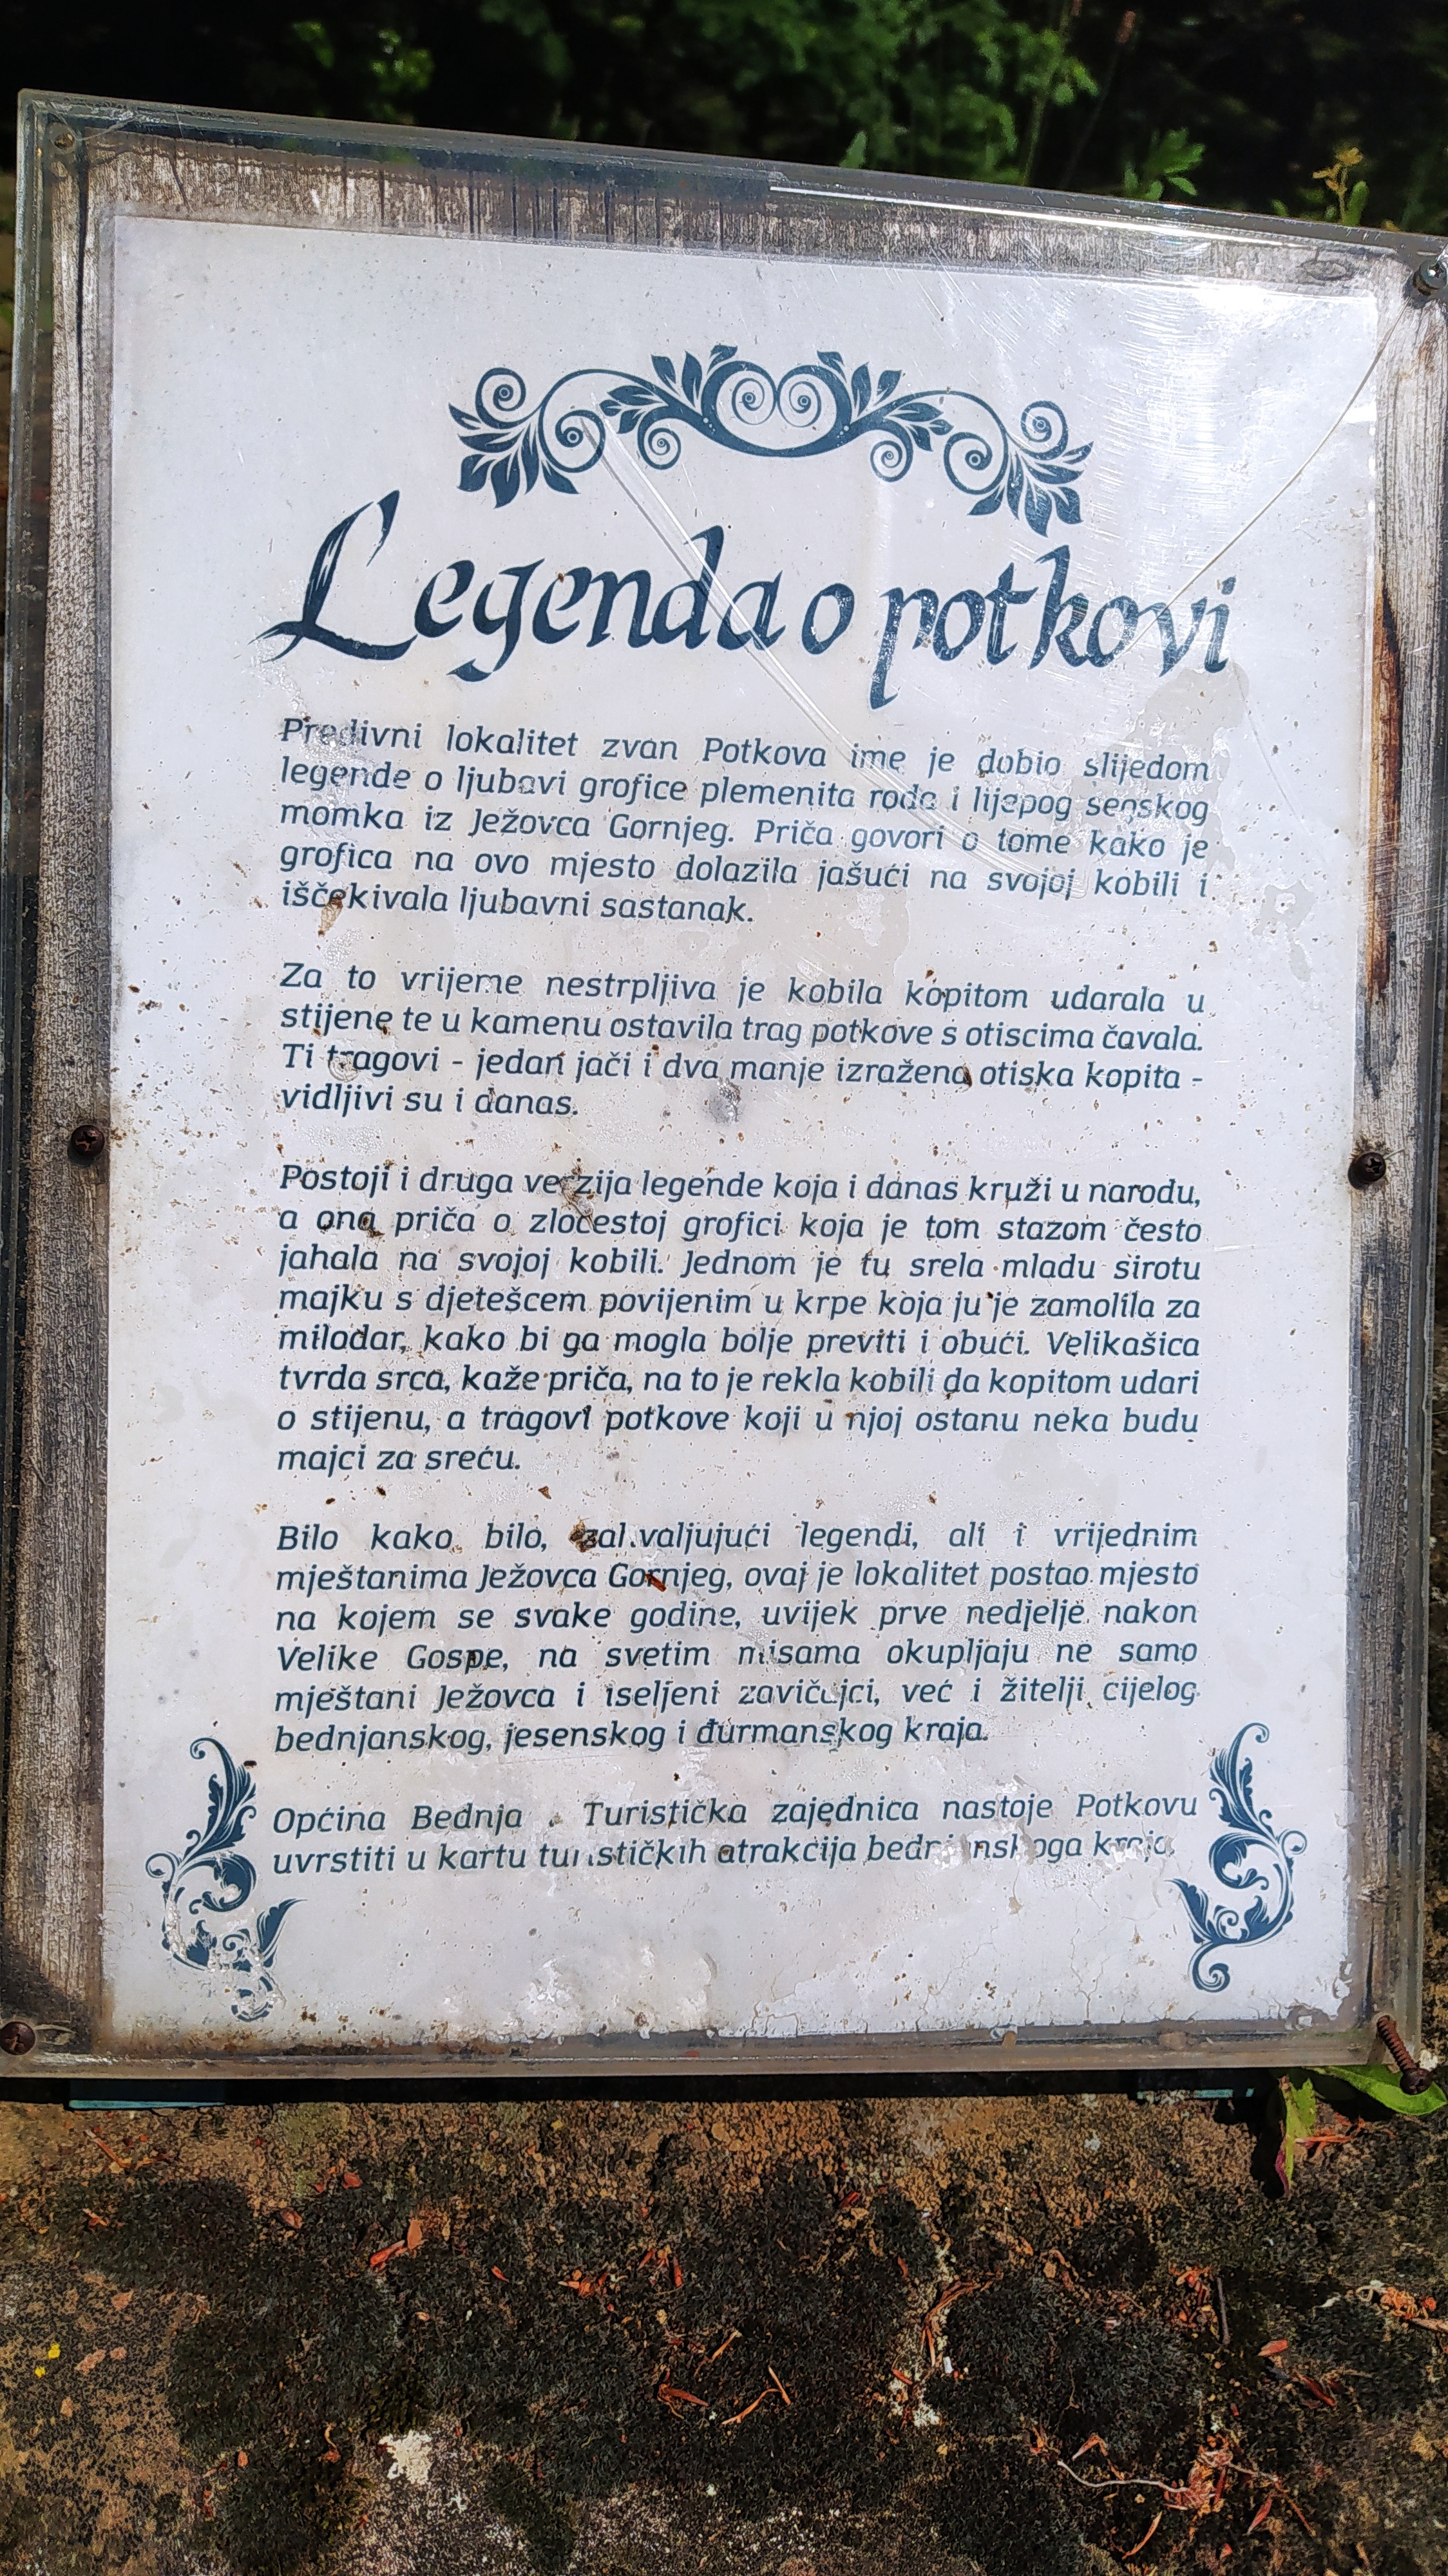 Legenda o potkovi
Predivni lokalitet zvan Potkova ime je dobio slijedom
legende o ljubavi grofice plemenita roda i lijepog seoskog
momka iz Ježovca Gornjeg. Priča govori o tome kako je
grofica na ovo mjesto dolazila jašući na svojoj kobili i
iščekivala ljubavni sastanak.
Za to vrijeme nestrpljiva je kobila kopitom udarala u
stijene te u kamenu ostavila trag potkove s otiscima čavala.
Ti tragovi - jedan jači i dva manje izražena otiska kopita -
vidljivi su i danas.
Postoji i druga verzija legende koja i danas kruži u narodu,
a ona priča o zločestoj grofici koja je tom stazom često
jahala na svojoj kobili. Jednom je tu srela mladu sirotu
majku s djetešcem povijenim u krpe koja ju je zamolila za
milodar, kako bi ga mogla bolje previti i obući. Velikašica
tvrda srca, kaže priča, na to je rekla kobili da kopitom udari
o stijenu, a tragovi potkove koji u njoj ostanu neka budu
majci za sreću.
Bilo kako bilo, zahvaljujući legendi, ali i vrijednim
mještanima Ježovca Gornjeg, ovaj je lokalitet postao mjesto
na kojem se svake godine, uvijek prve nedjelje nakon
Velike Gospe, na svetim misama okupljaju ne samo
mještani Ježovca i iseljeni zavičajci, već i žitelji cijelog
bednjanskog, jesenskog i đurmanskog kraja.
Općina Bednja Turistička zajednica nastoje Potkovu
uvrstiti u kartu turističkih atrakcija bednjanskoga kraja.